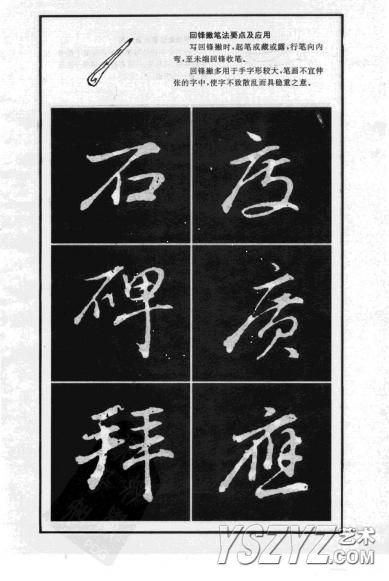 回锋撇笔法要点及应用
写回锋撇时,起笔或藏或露,行笔向内
弯,至末端回锋收笔。
回锋撇多用于手字形较大,笔画不宜伸
张的字中,使字不致散乱而具稳重之意。
石 度
碑 廣
拜 應
YSZYZ艺术
.COM